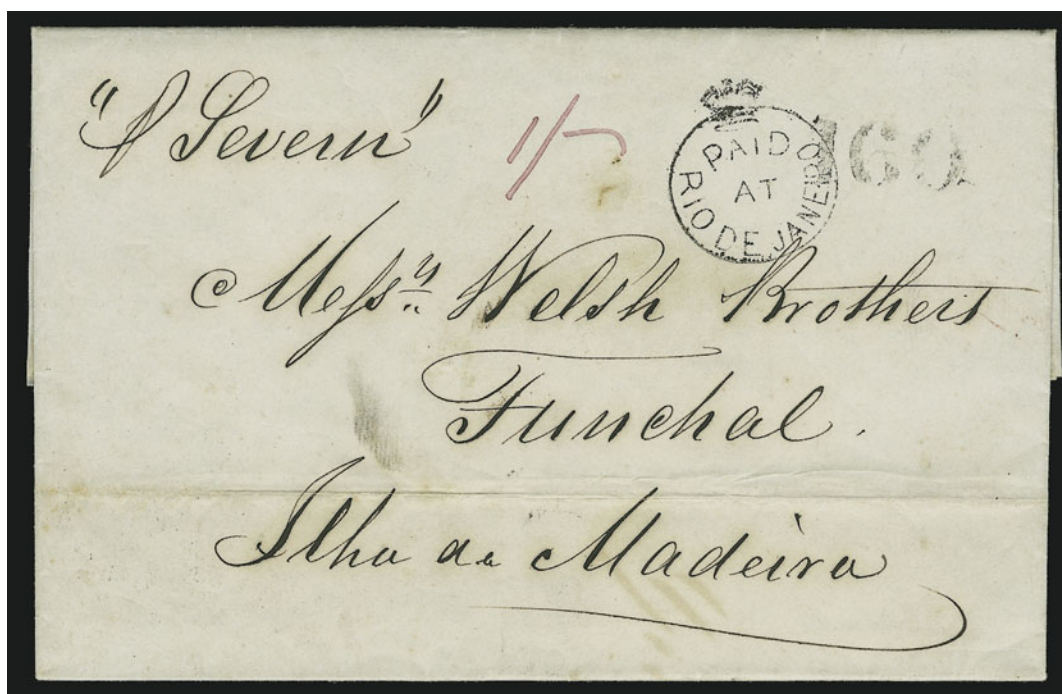 "p Severn"
1/-
PAID
AT
RIO DE JANEIRO
160
Messrs. Welsh Brothers
Funchal.
Ilha da Madeira